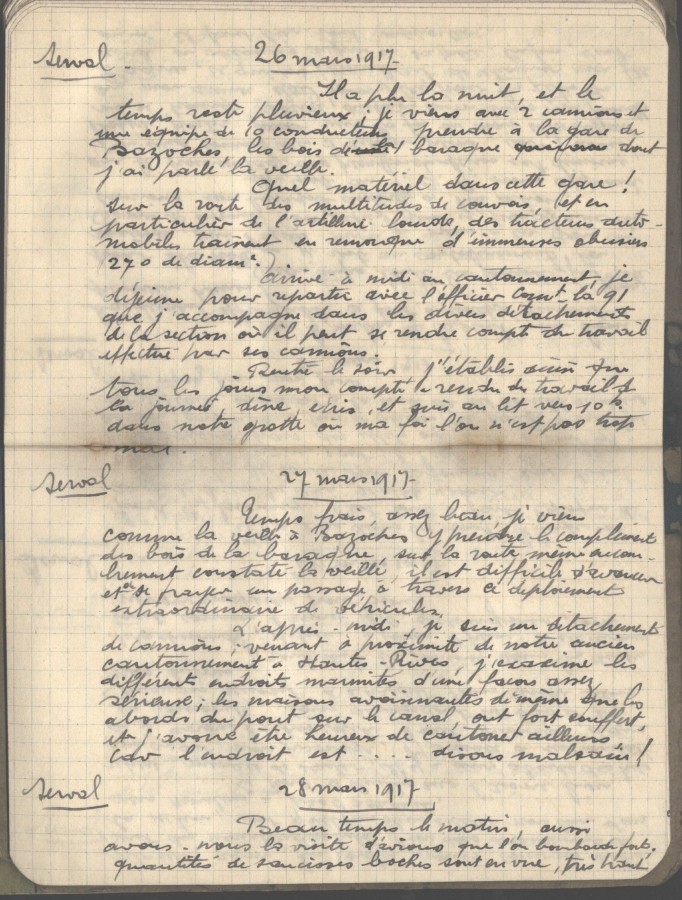 Serval. 26 mars 1917
Il a plu la nuit, et le
temps reste pluvieux; je viens avec 2 camions et
une équipe de 10 conducteurs prendre à la gare de
Bazoches, les bois de baraque dont
j'ai parlé la veille.
Quel matériel dans cette gare!
sur la route des multitudes de convois, et en
particulier de l'artillerie lourde, des tracteurs auto-
mobiles trainent en remorque d'immenses obusiers
270 de diamre.)
arrivé à midi au cantonnement, je
déjeune pour repartir avec l'officier Comt la 91
que j'accompagne dans les divers détachements
de la section où il peut se rendre compte du travail
effectué par ses camions.
Rentré le soir j'établis ainsi que
tous les jours mon compte rendu du travail de
la journée, dîne, écris, et suis au lit vers 10h.
dans notre grotte où ma foi l'on n'est pas trop
mal.
Serval 27 mars 1917
Temps frais, assez beau, je viens
comme la veille à Bazoches y prendre le complément
des bois de la baraque, sur la route même encom-
brement constaté la veille, il est difficile d'avancer
et de se frayer un passage à travers ce déploiement
extraordinaire de véhicules.
L'après-midi, je suis un détachement
de camions, venant à proximité de notre ancien
cantonnement à Hautes-Rives, j'examine les
différent endroits marmités d'une façons assez
sérieuse; les maisons avoisinantes de même que les
abords du pont sur le canal, ont fort souffert,
et j'avoue être heureux de cantoner ailleurs
car l'endroit est .... disons malsain!
Serval 28 mars 1917
Beau temps le matin, aussi
avons-nous la visite d'avions que l'on bombarde fort.
quantités de saucisses boches sont en vue, très haut